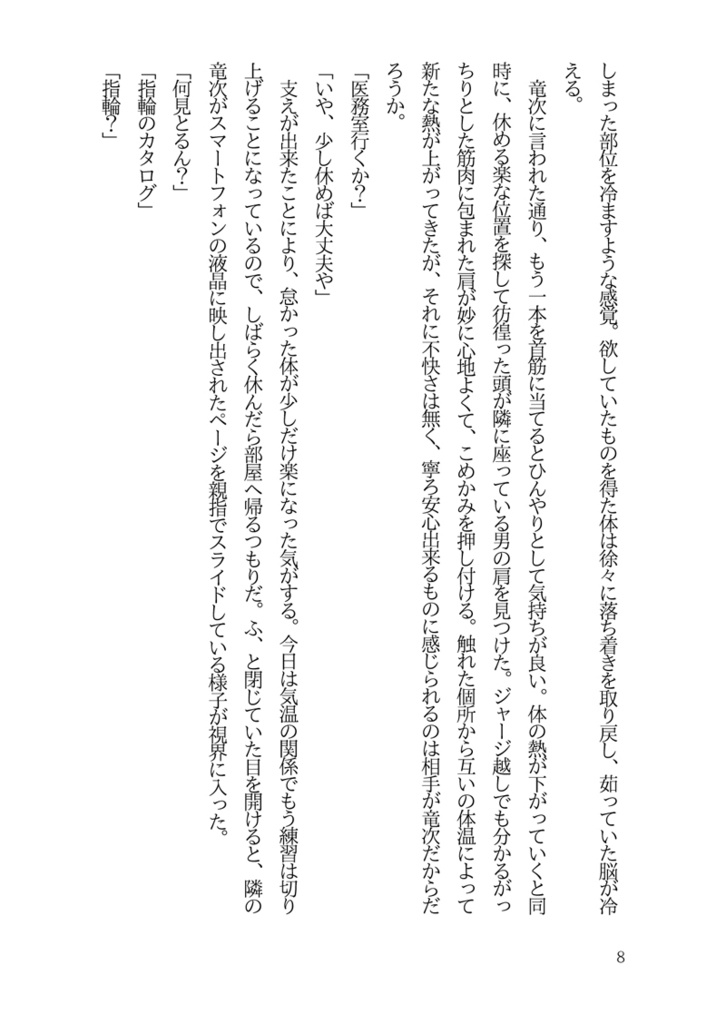 しまった部位を冷ますような感覚。欲していたものを得た体は徐々に落ち着きを取り戻し、茹っていた脳が冷
える。
　竜次に言われた通り、もう一本を首筋に当てるとひんやりとして気持ちが良い。体の熱が下がっていくと同
時に、休める楽な位置を探して彷徨った頭が隣に座っている男の肩を見つけた。ジャージ越しでも分かるがっ
ちりとした筋肉に包まれた肩が妙に心地よくて、こめかみを押し付ける。触れた個所から互いの体温によって
新たな熱が上がってきたが、それに不快さは無く、寧ろ安心出来るものに感じられるのは相手が竜次だからだ
ろうか。
「医務室行くか？」
「いや、少し休めば大丈夫や」
　支えが出来たことにより、怠かった体が少しだけ楽になった気がする。今日は気温の関係でもう練習は切り
上げることになっているので、しばらく休んだら部屋へ帰るつもりだ。ふ、と閉じていた目を開けると、隣の
竜次がスマートフォンの液晶に映し出されたページを親指でスライドしている様子が視界に入った。
「何見とるん？」
「指輪のカタログ」
「指輪？」
8